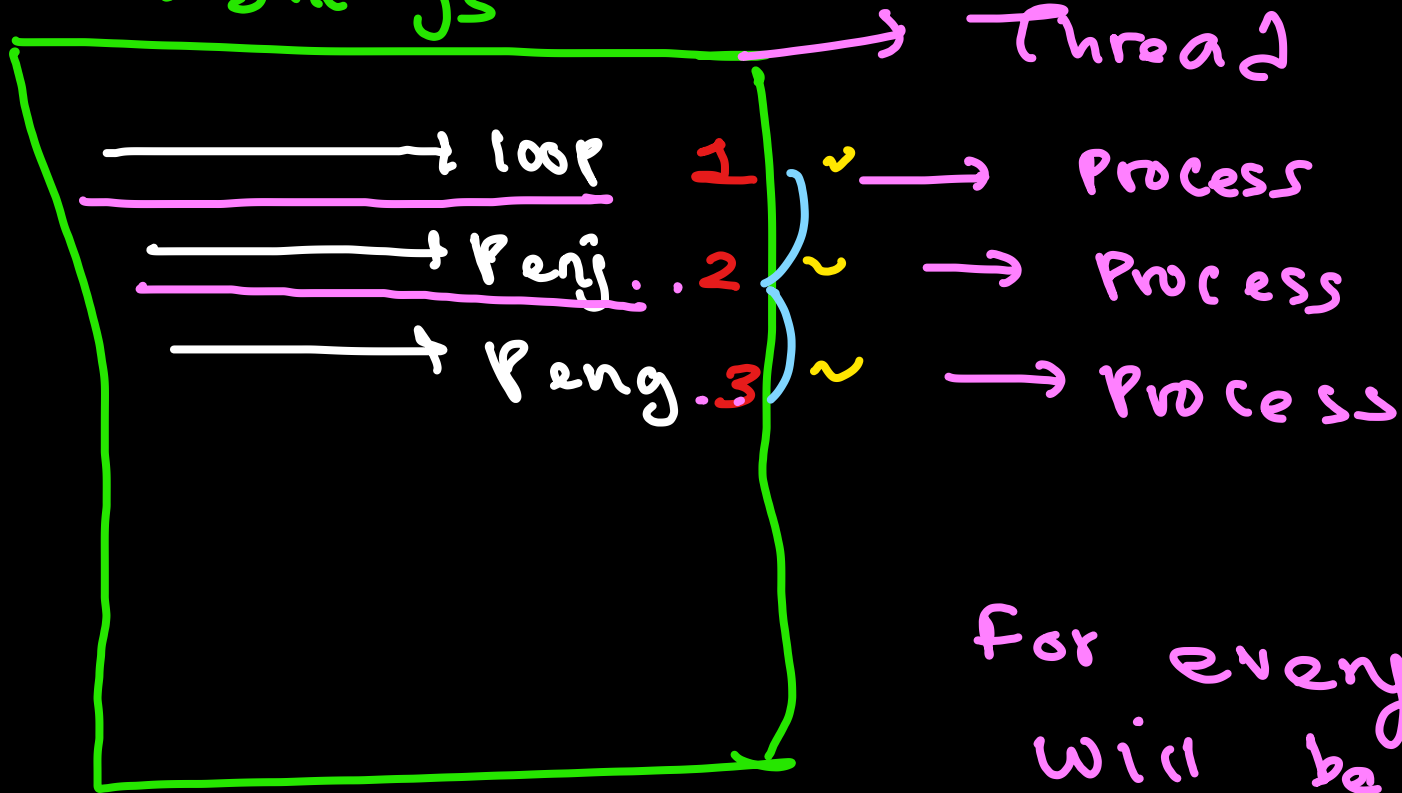 js
Thread
loop 1 Process
Penj.. 2 Process
Peng.. 3 Process
For every
will be